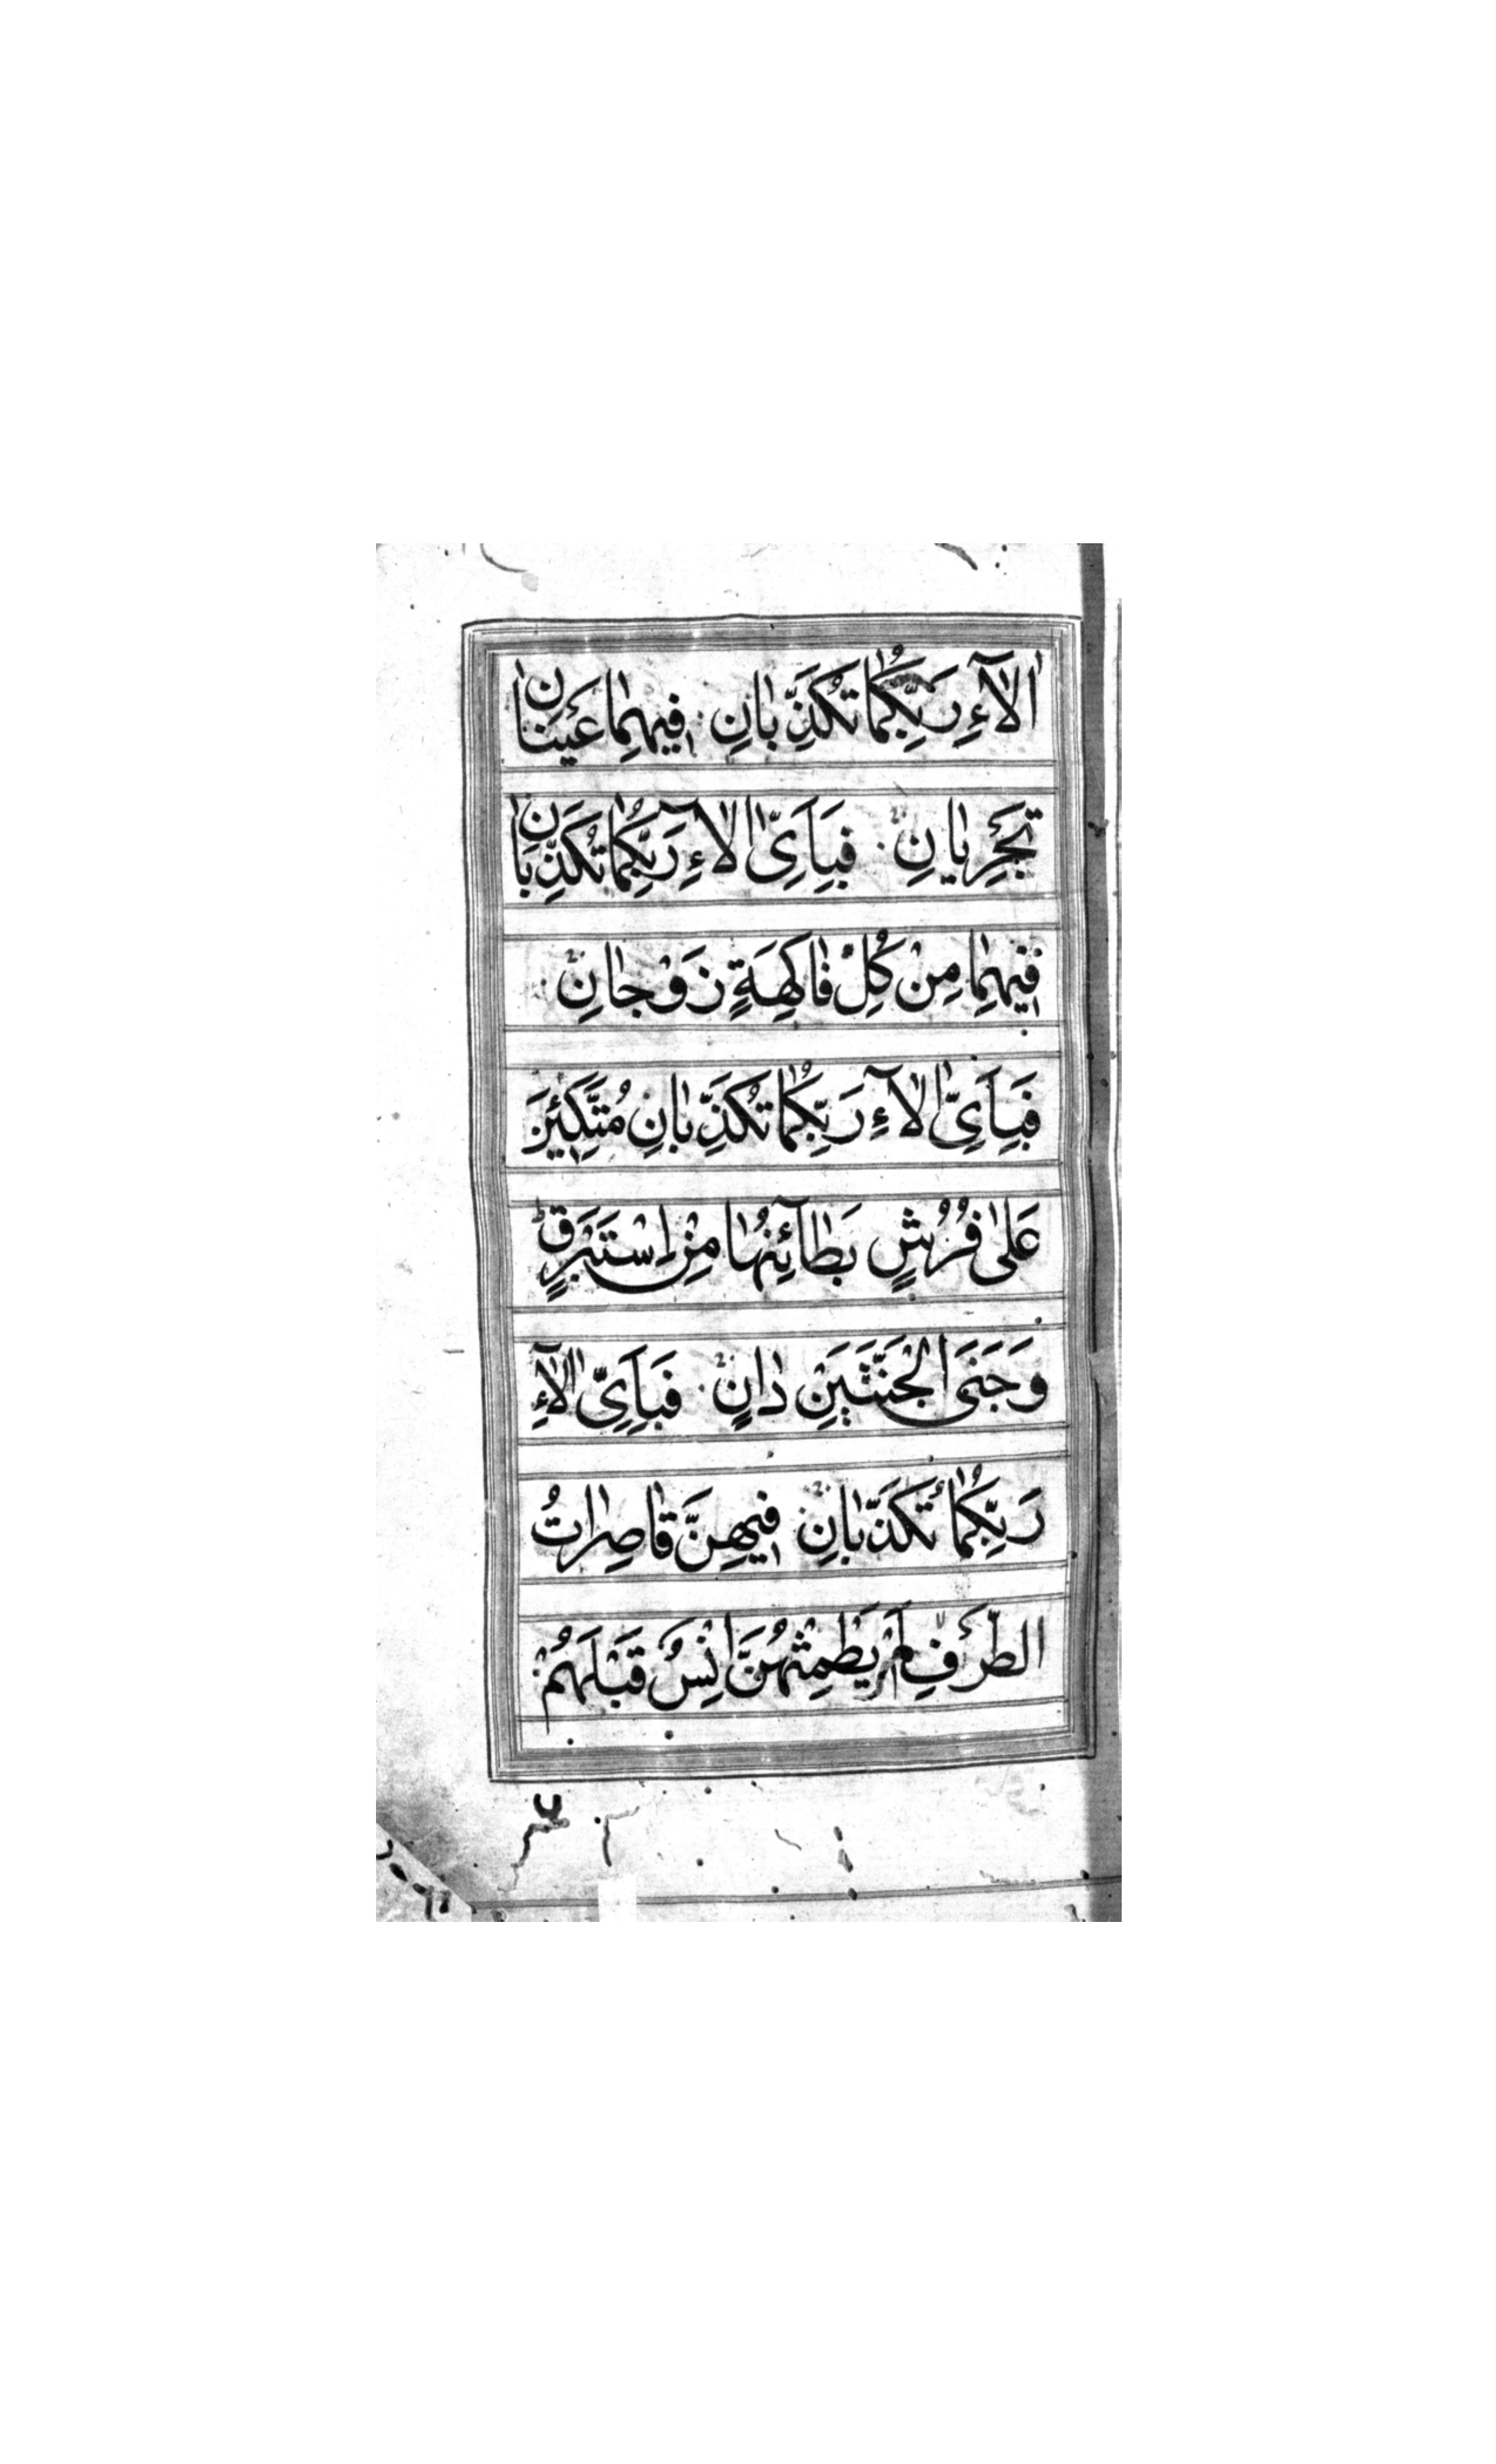 اٰلَآءِ رَبِّكُمٰا تُكَذِّبٰانِ فِيهِمٰا عَيْنٰانِ
تَجْرِيٰانِ فَبِاَىِّ اٰلَآءِ رَبِّكُمٰا تُكَذِّبٰانِ
فِيهِمٰا مِنْ كُلِّ فٰاكِهَةٍ زَوْجٰانِ
فَبِاَىِّ اٰلَآءِ رَبِّكُمٰا تُكَذِّبٰانِ مُتَّكِئِينَ
عَلىٰ فُرُشٍ بَطٰآئِنُهٰا مِنْ اِسْتَبْرَقٍ ط
وَجَنَى الْجَنَّتَيْنِ دٰانٍ فَبِاَىِّ اٰلَآءِ
رَبِّكُمٰا تُكَذِّبٰانِ فِيهِنَّ قٰاصِرٰاتُ
الطَّرْفِ لَمْ يَطْمِثْهُنَّ اِنْسٌ قَبْلَهُمْ